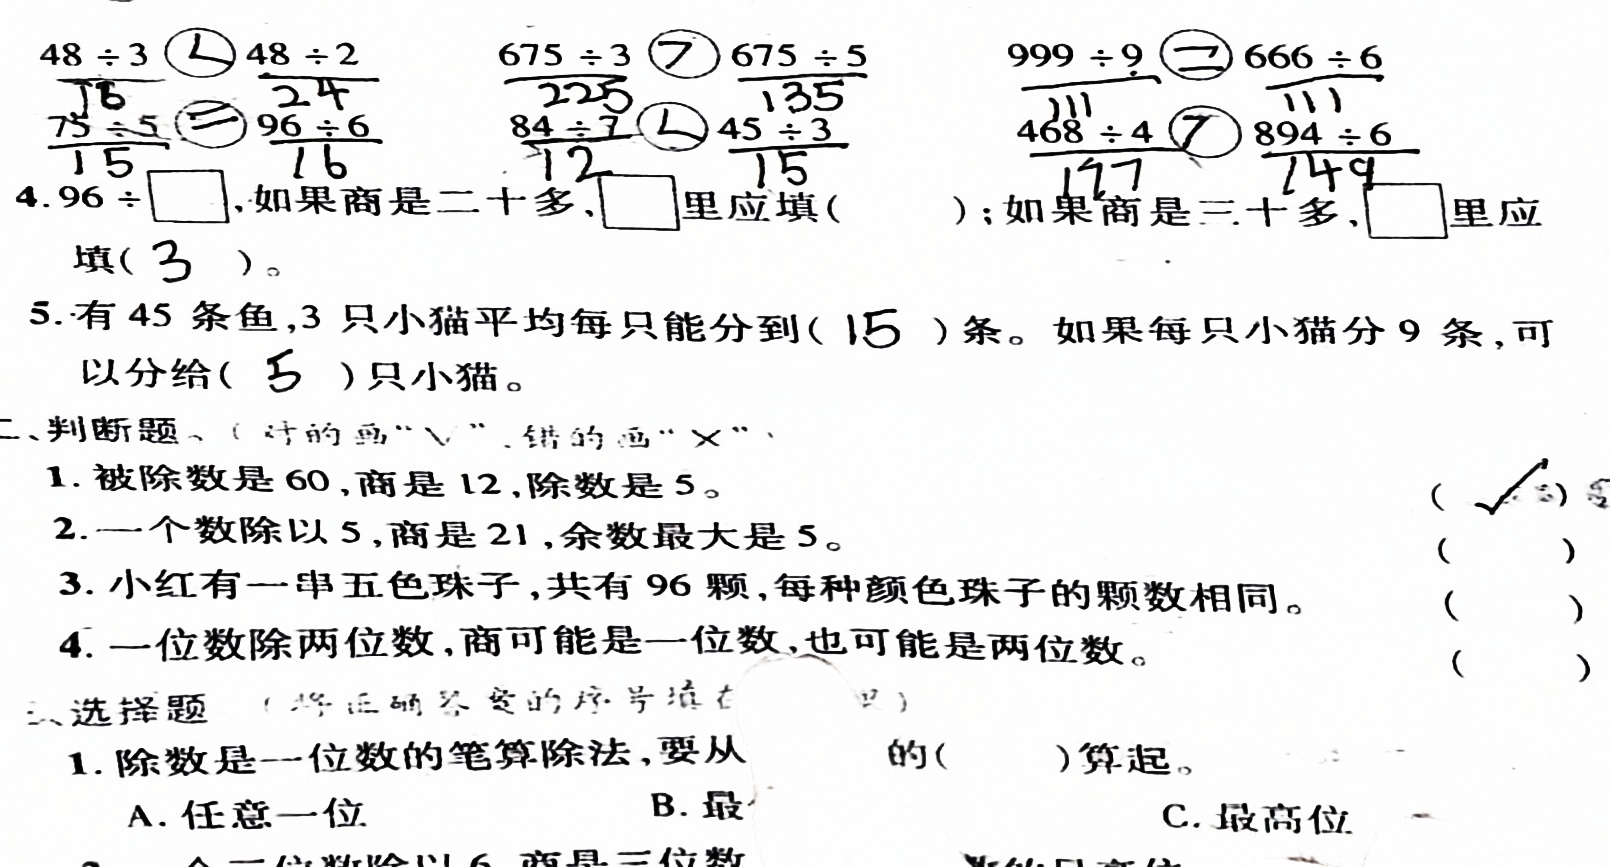 48 ÷ 3 < 48 ÷ 2 675 ÷ 3 > 675 ÷ 5 999 ÷ 9 = 666 ÷ 6
16 24 225 135 111 111
75 ÷ 5 = 96 ÷ 6 84 ÷ 7 < 45 ÷ 3 468 ÷ 4 > 894 ÷ 6
15 16 12 15 177 149
4. 96 ÷ □,如果商是二十多,□里应填( );如果商是三十多,□里应
填( 3 )。
5. 有 45 条鱼,3 只小猫平均每只能分到( 15 )条。如果每只小猫分 9 条,可
以分给( 5 )只小猫。
二、判断题。(对的画“√”,错的画“×”)
1. 被除数是 60,商是 12,除数是 5。 ( √ )
2. 一个数除以 5,商是 21,余数最大是 5。 ( )
3. 小红有一串五色珠子,共有 96 颗,每种颜色珠子的颗数相同。 ( )
4. 一位数除两位数,商可能是一位数,也可能是两位数。 ( )
三、选择题 (将正确答案的序号填在 里)
1. 除数是一位数的笔算除法,要从 的( )算起。
A. 任意一位 B. 最 C. 最高位
一个三位数除以 6,商是三位数